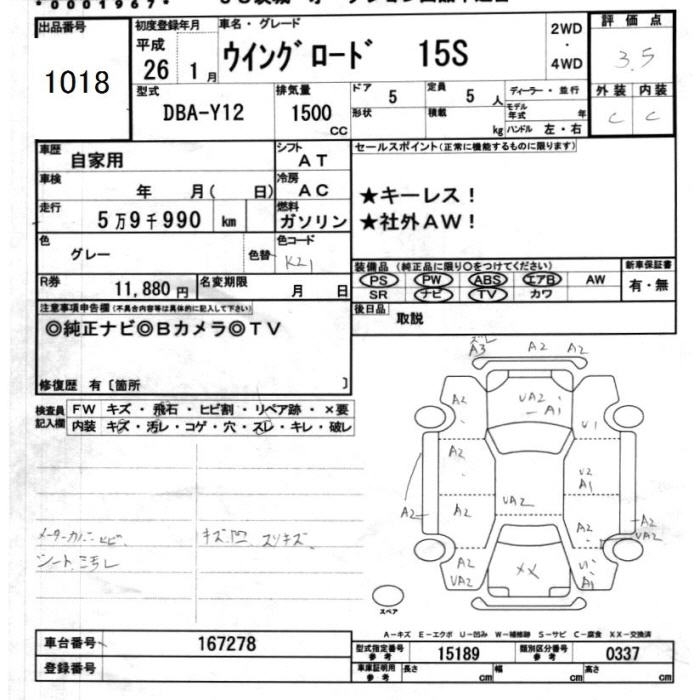 *0001967*
出品番号
1018
初度登録年月
平成
26 1 月
車名・グレード
ウイングロード 15S
2WD
・
4WD
評価点
3.5
型式
DBA-Y12
排気量
1500
CC
ドア
5
形状
定員
5 人
積載
kg
ディーラー・並行
モデル
年式
年
ハンドル 左・右
外装
C
内装
C
車歴
自家用
シフト
AT
車検
年 月( 日)
冷房
AC
走行
5万9千990 km
燃料
ガソリン
色
グレー
色替
色コード
K21
R券
11,880 円
名変期限
月 日
セールスポイント(正常に機能するものに限ります)
★キーレス!
★社外AW!
装備品(純正品に限り○をつけてください)
PS PW ABS エアB AW
SR ナビ TV カワ
新車保証書
有・無
後日品
取説
注意事項申告欄(不具合内容等は具体的に記入して下さい)
◎純正ナビ◎Bカメラ◎TV
修復歴 有〔箇所 〕
検査員
記入欄
FW キズ・飛石・ヒビ割・リペア跡・×要
内装 キズ・汚レ・コゲ・穴・スレ・キレ・破レ
メーターカバー ヒビ
シート、シミ汚レ
キズ凹 スリキズ
ズレ
A3
A2 A2
A2
UA2
A1
U1
A2
U2
A1
A2
A2
UA2
A2
A2
UA2
A2
UA2
XX
U1
A1
スペア
A-キズ E-エクボ U-凹み W-補修跡 S-サビ C-腐食 XX-交換済
車台番号
167278
登録番号
型式指定番号
参考
15189
類別区分番号
参考
0337
車庫証明用
参考
長さ
cm
幅
cm
高さ
cm